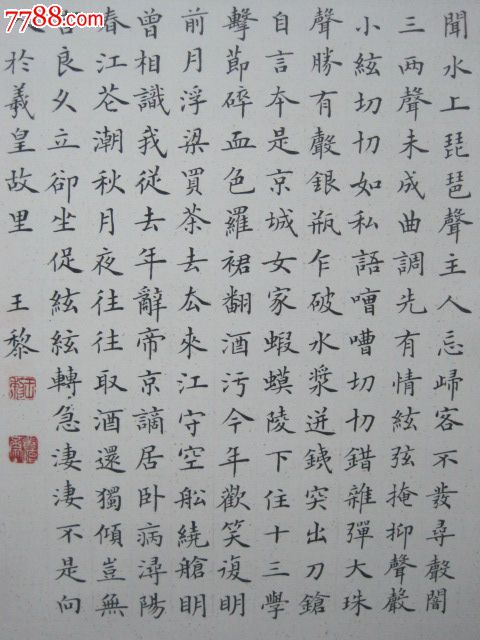 7788.com
聞水上琵琶聲主人忘歸客不發尋聲闇
三兩聲未成曲調先有情絃弦掩抑聲聲
小絃切切如私語嘈嘈切切錯雜彈大珠
聲勝有聲銀瓶乍破水漿迸鐵突出刀鎗
自言本是京城女家蝦蟆陵下住十三學
擊節碎血色羅裙翻酒污今年歡笑復明
前月浮梁買茶去去來江守空船繞艙明
曾相識我從去年辭帝京謫居卧病潯陽
春江花潮秋月夜往往取酒還獨傾豈無
言良久立卻坐促絃絃轉急淒淒不是向
於羲皇故里 王黎